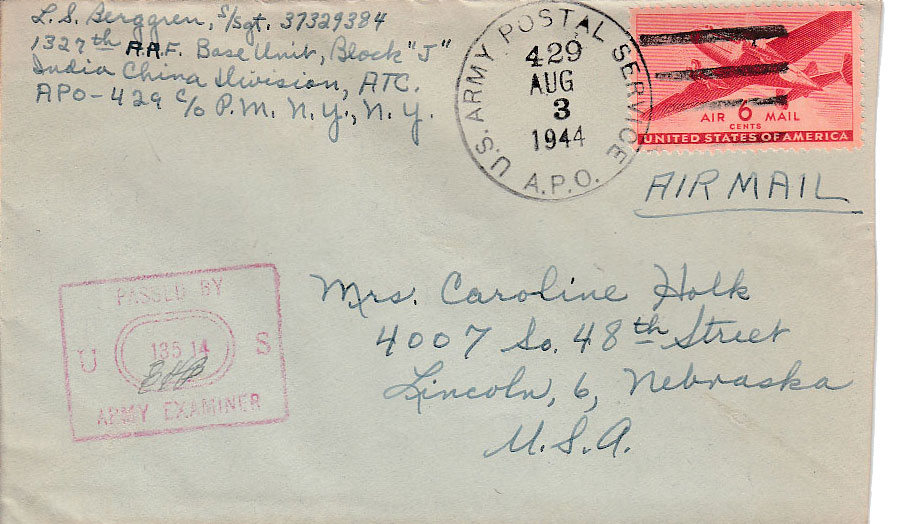 L. S. Berggren, S/Sgt. 37329384
1327th A.A.F. Base Unit, Block "J"
India China Division, ATC.
APO-429 c/o P.M. N.Y., N.Y.
U.S. ARMY POSTAL SERVICE
429
AUG
3
1944
A.P.O.
AIR 6 MAIL
CENTS
UNITED STATES OF AMERICA
AIR MAIL
PASSED BY
U 13514 S
ARMY EXAMINER
Mrs. Caroline Holk
4007 So. 48th Street
Lincoln, 6, Nebraska
U.S.A.